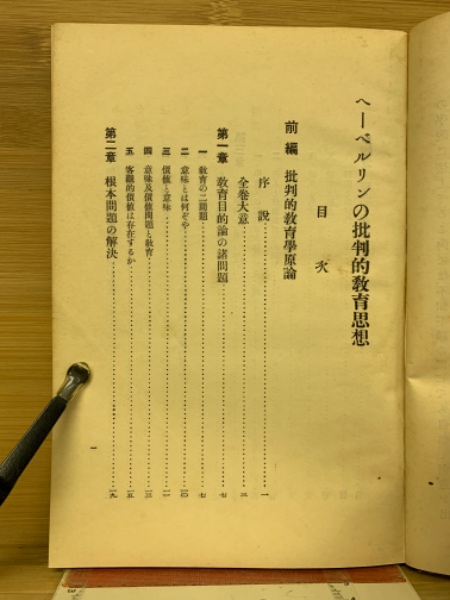 ヘーベルリンの批判的教育思想
目次
前編 批判的教育學原論
序說……一
全卷大意……二
第一章 教育目的論の諸問題……七
一 教育の二問題……七
二 意味とは何ぞや……一〇
三 價値と意味……一一
四 意味及價値問題と教育……一三
五 客觀的價値は存在するか……一五
第二章 根本問題の解決……一九
一